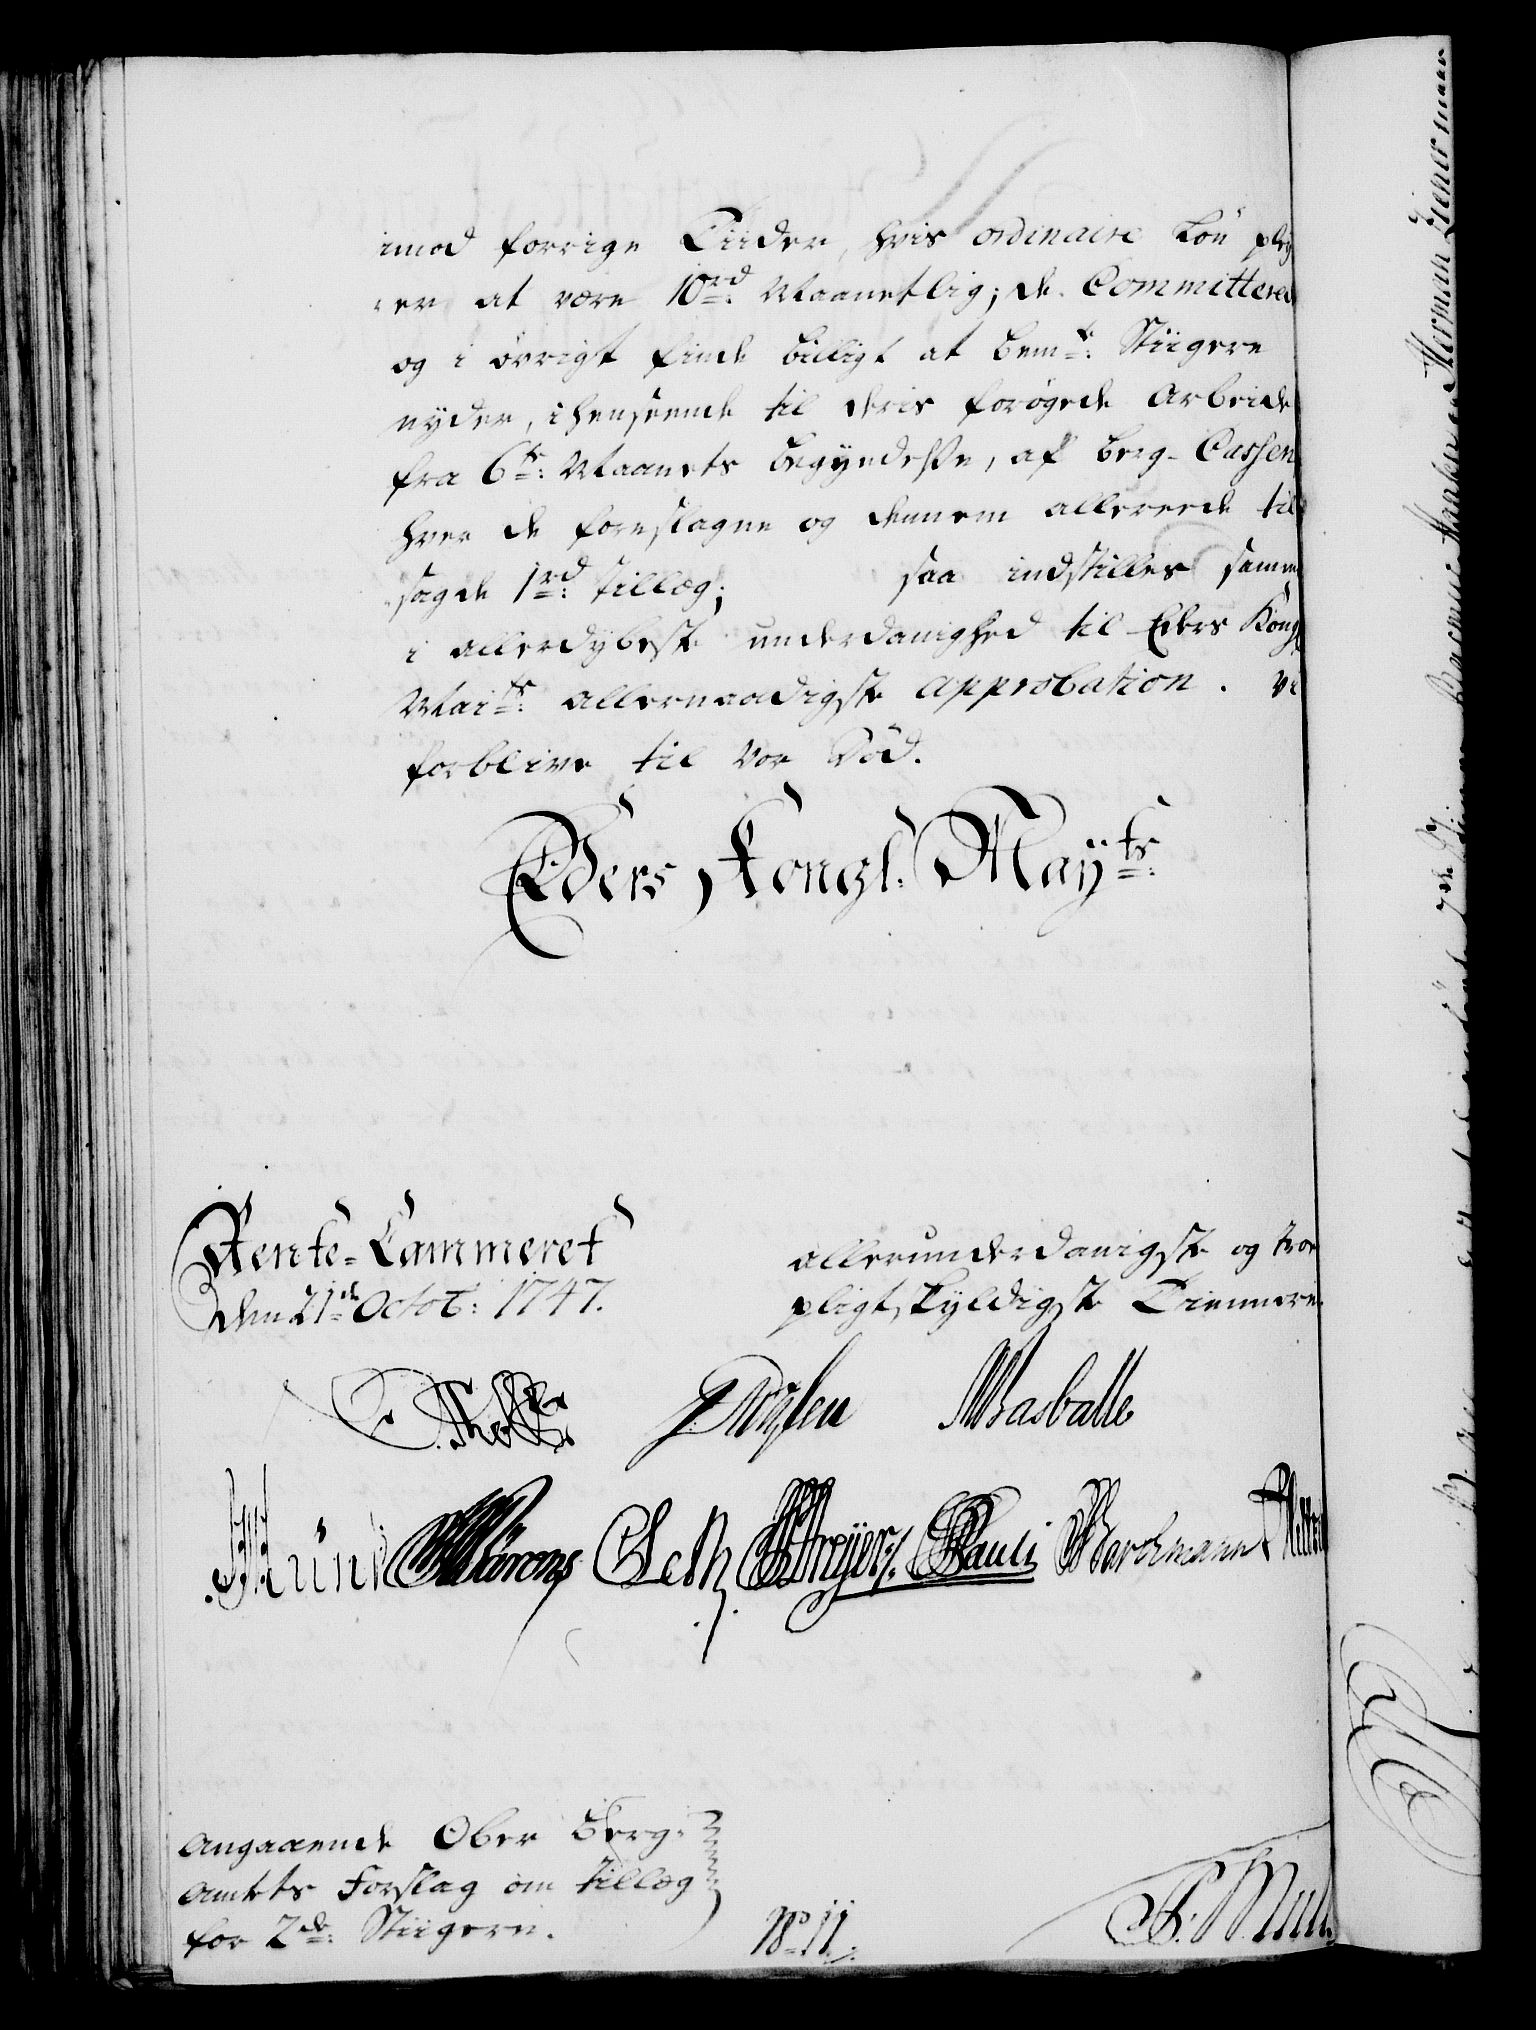 imod forrige Tiider, hvis ordinaire Løn pley
er at være 10rd Maanetlig; de Committered
og i øvrigt finde billigt at bemte: Stiigere
nyder, i henseende til deris forøgede Arbeide
fra 6te: Maanets begyndelse, af Berg-Cassen
hver de foreslagne og dennem allereede til
sagde 1rd tillæg; saa indstilles samme
i allerdybeste underdanighed til Eders Kongl
Maits: allernaadigste approbation. Vi
forblive til vor Død.
Eders Kongl: Mayts:
Rente-Cammeret
den 21de Octob: 1747.
allerunderdanigste og troe
pligtskyldigste Tiennere.
Rasballe
Pauli Barchmann
Angaaende Ober Berg-
Amtets Forslag om tillæg
for 2de: Stiigere.
No 11.
Herman Ziener